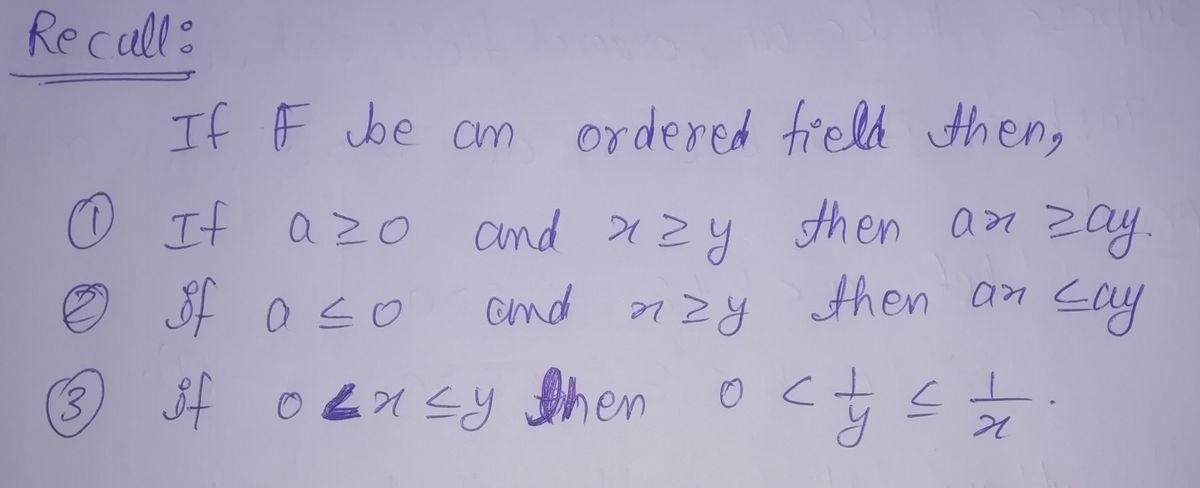 Recall:
If F be an ordered field then,
① If a ≥ 0 and x ≥ y then ax ≥ ay.
② If a ≤ 0 and x ≥ y then ax ≤ ay
③ If 0 < x ≤ y then 0 < 1/y ≤ 1/x.